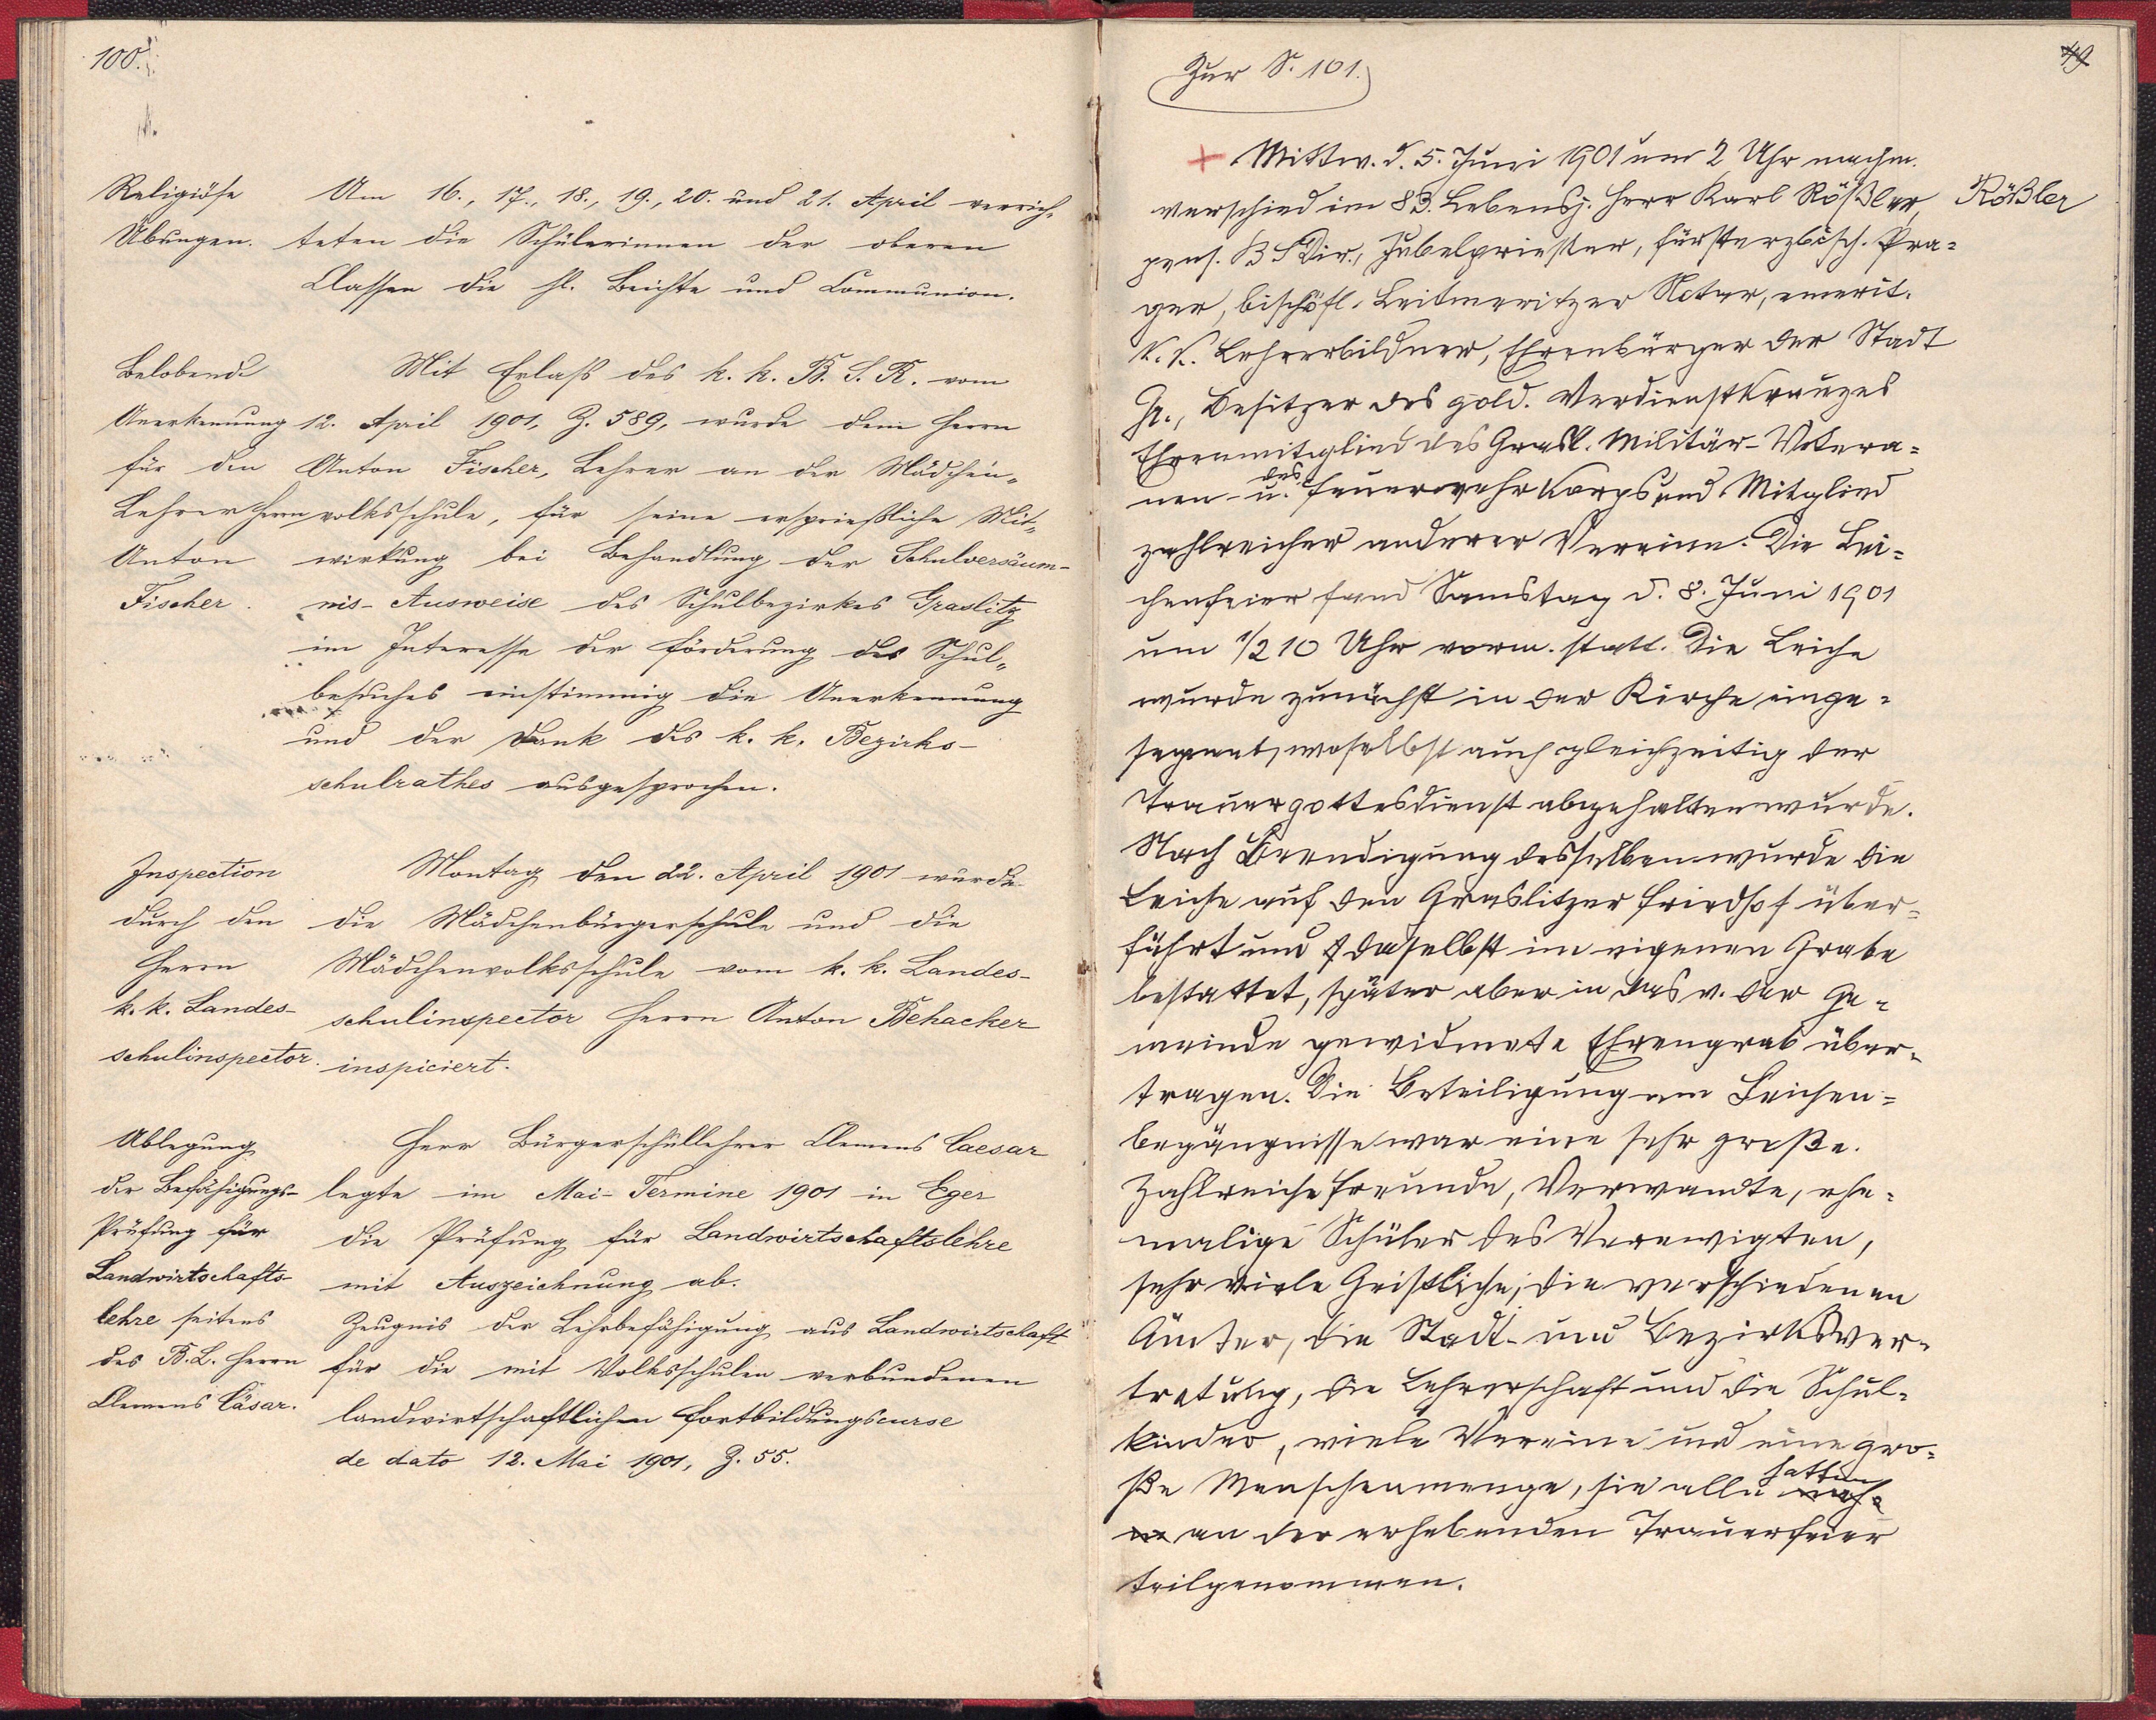 100.
Religiöse
Übungen.
Am 16., 17., 18., 19., 20. und 21. April verrich-
teten die Schülerinnen der oberen
Classen die hl. Beichte und Communion.
Belobende
Anerkennung
für den
Lehrer Herrn
Anton
Fischer.
Mit Erlaß des k. k. B. S. R. vom
12. April 1901, Z. 589, wurde dem Herrn
Anton Fischer, Lehrer an der Mädchen-
volksschule, für seine ersprießliche Mit-
wirkung bei Behandlung der Schulversäum-
nis-Ausweise des Schulbezirkes Graslitz
im Interesse der Förderung des Schul-
besuches einstimmig die Anerkennung
und der Dank des k. k. Bezirks-
schulrathes ausgesprochen.
Inspection
durch den
Herrn
k. k. Landes-
schulinspector.
Montag den 22. April 1901 wurde
die Mädchenbürgerschule und die
Mädchenvolksschule vom k. k. Landes-
schulinspector Herrn Anton Behacker
inspiciert.
Ablegung
der Befähigungs-
Prüfung für
Landwirtschafts-
lehre seitens
des B. L. Herrn
Clemens Cäsar.
Herr Bürgerschullehrer Clemens Caesar
legte im Mai-Termine 1901 in Eger
die Prüfung für Landwirtschaftslehre
mit Auszeichnung ab.
Zeugnis der Lehrbefähigung aus Landwirtschaft
für die mit Volksschulen verbundenen
landwirtschaftlichen Fortbildungscurse
de dato 12. Mai 1901, Z. 55.
Zur S. 101.
49
+ Mittw. d. 5. Juni 1901 um 2 Uhr nachm.
verschied im 83. Lebensj. Herr Karl Rößler,
Rößler
pens. BSDir., Jubelpriester, fürsterzbisch. Pra-
ger, bischöfl. Leitmeritzer Notar, emerit.
k. k. Lehrerbildner, Ehrenbürger der Stadt
Gr., Besitzer des gold. Verdienstkreuzes
Ehrenmitglied des Grasl. Militär-Vetera-
nen- u. des Feuerwehrkorps und Mitglied
zahlreicher anderer Vereine. Die Lei-
chenfeier fand Samstag d. 8. Juni 1901
um 1/2 10 Uhr vorm. statt. Die Leiche
wurde zunächst in der Kirche einge-
segnet, woselbst auch gleichzeitig der
Trauergottesdienst abgehalten wurde.
Nach Beendigung desselben wurde die
Leiche auf den Graslitzer Friedhof über-
führt und daselbst im eigenen Grabe
bestattet, später aber in das v. der Ge-
meinde gewidmete Ehrengrab über-
tragen. Die Beteiligung am Leichen-
begängnisse war eine sehr große.
Zahlreiche Freunde, Verwandte, ehe-
malige Schüler des Verewigten,
sehr viele Geistliche, die verschiedenen
Ämter, die Stadt- und Bezirksver-
tretung, die Lehrerschaft und die Schul-
kinder, viele Vereine und eine gro-
ße Menschenmenge, sie alle hatten
an der erhebenden Trauerfeier
teilgenommen.